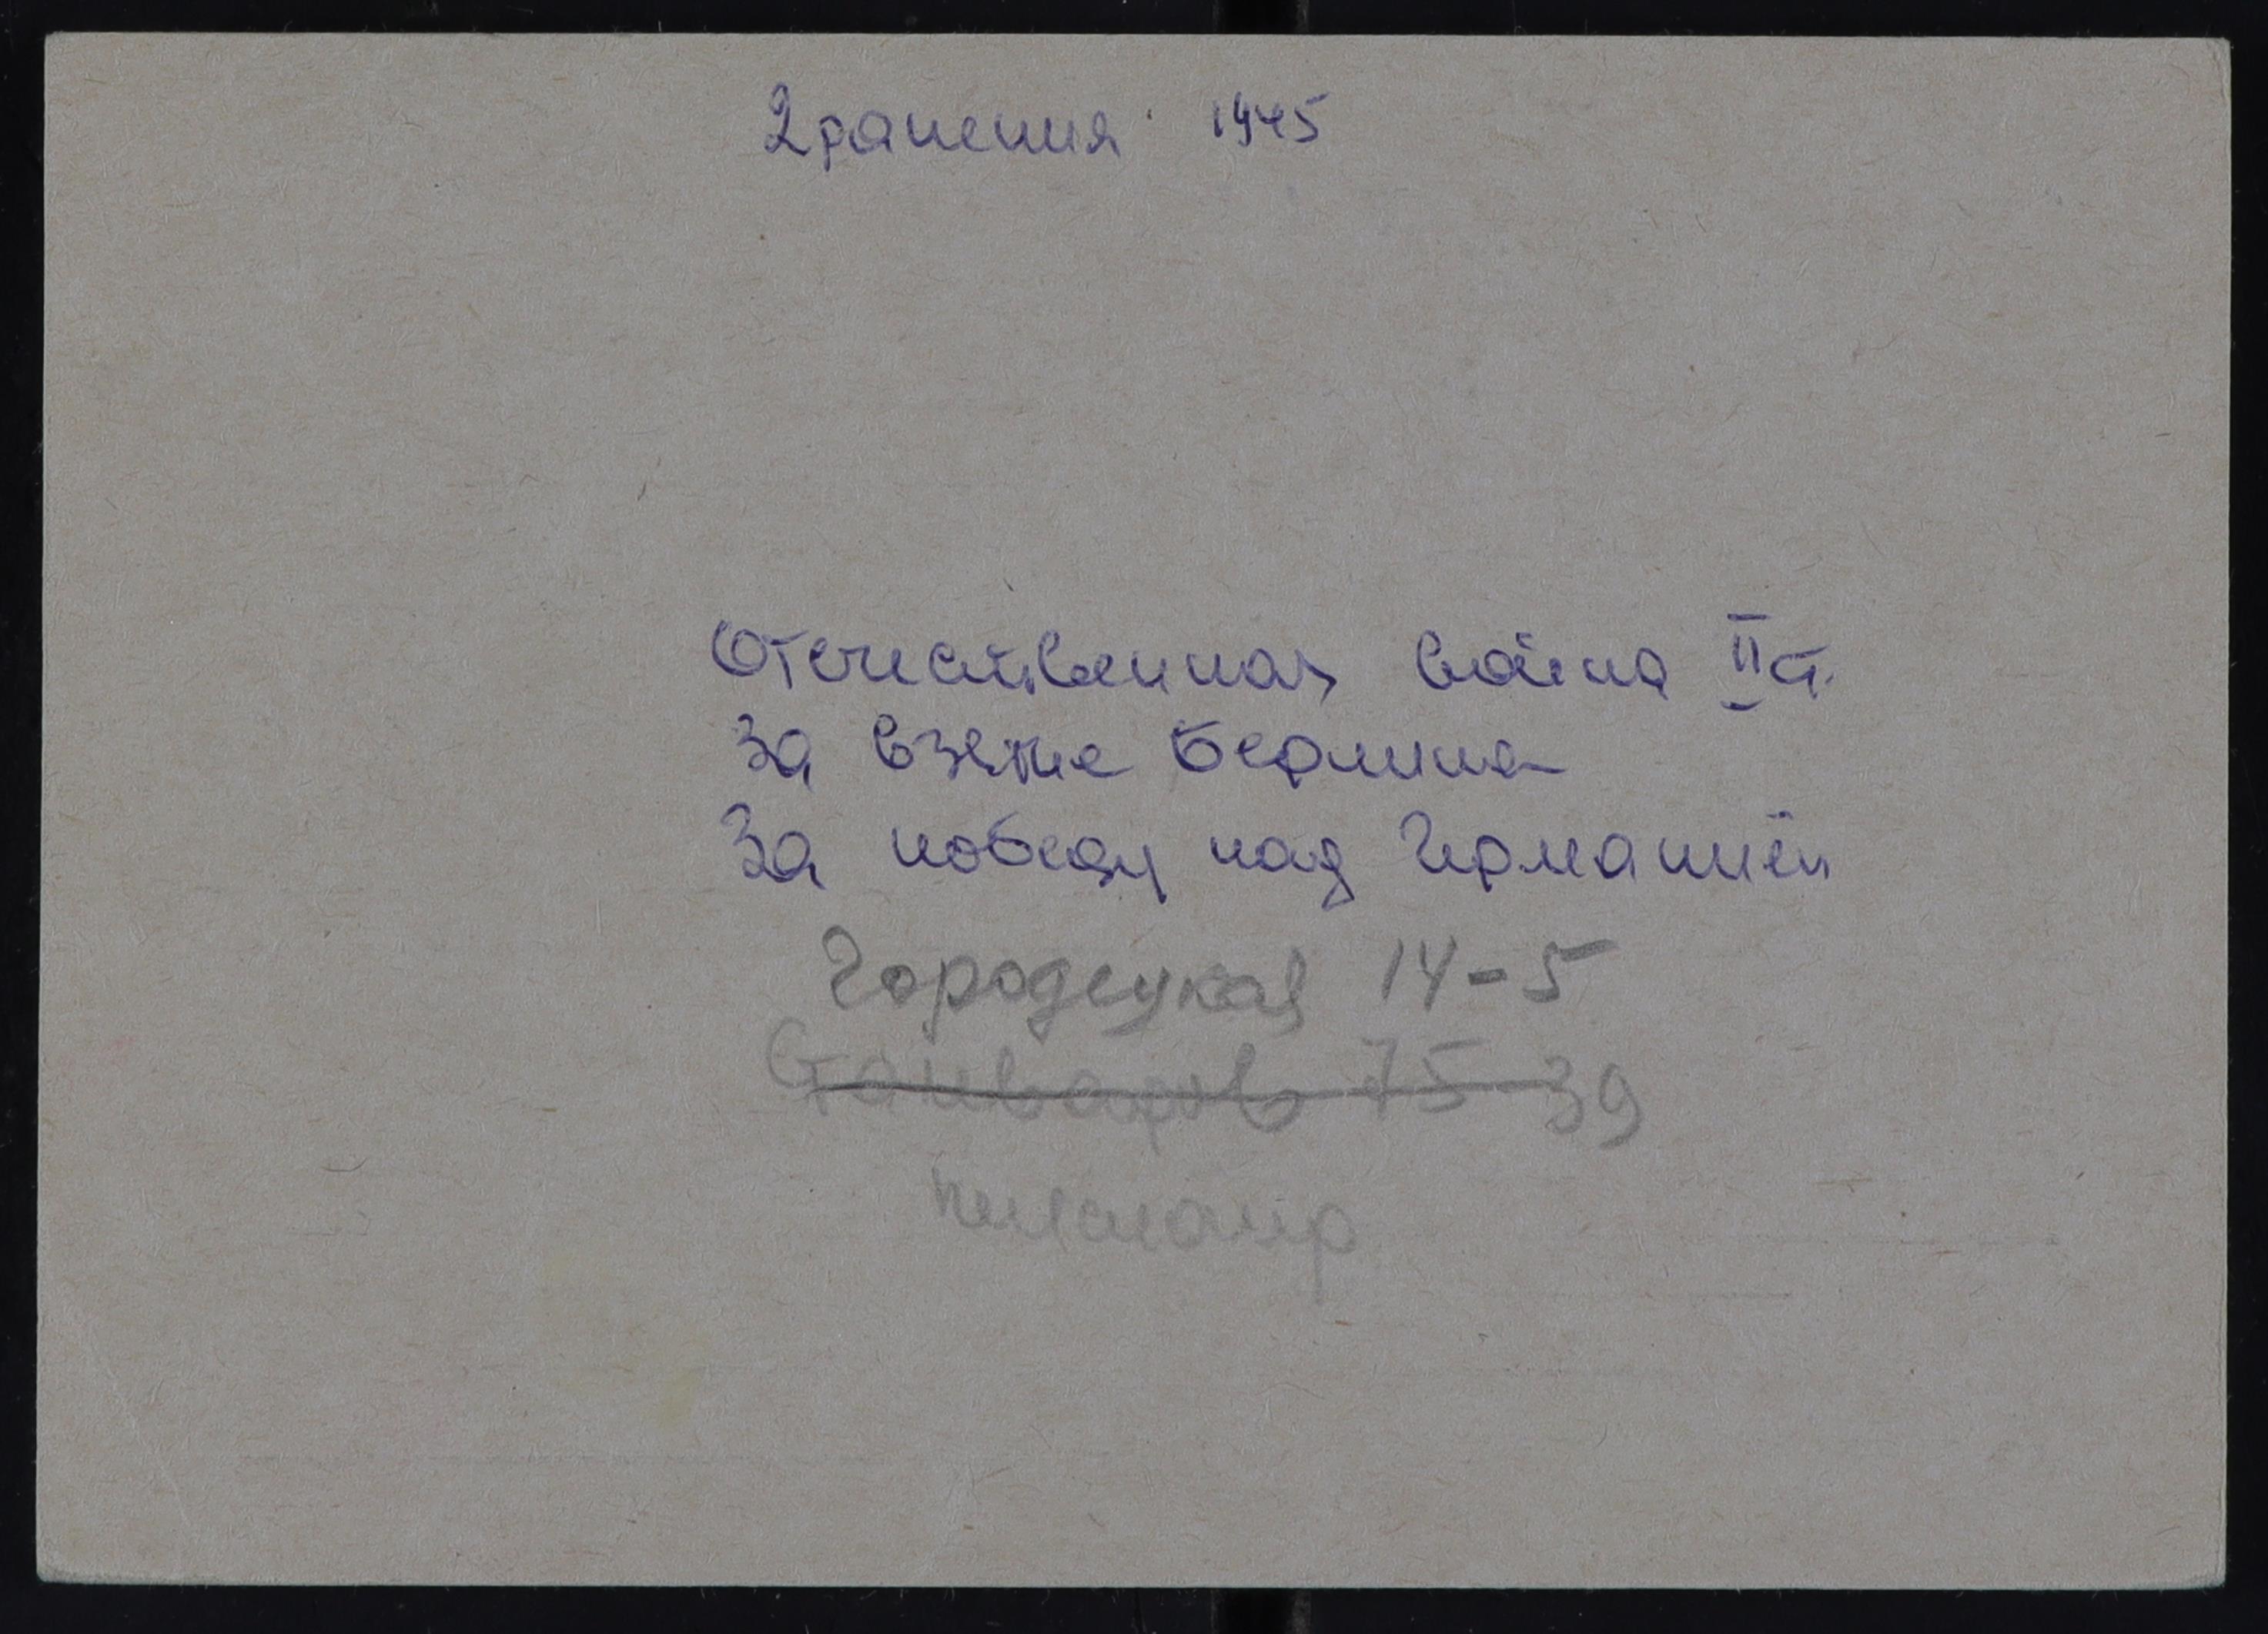 2 ранения 1945
Отечественная война II ст.
За взятие Берлина
За победу над Германией
Городецкая 14-5
75-39